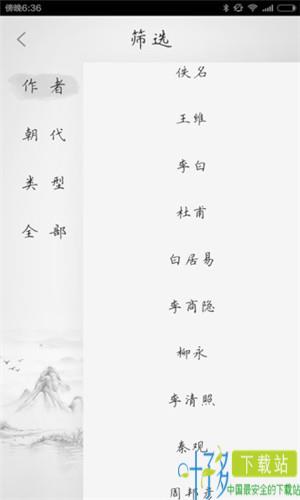 傍晚6:36
筛选
作者
朝代
类型
全部
佚名
王维
李白
杜甫
白居易
李商隐
柳永
李清照
秦观
周邦彦
下载站
中国最安全的下载站